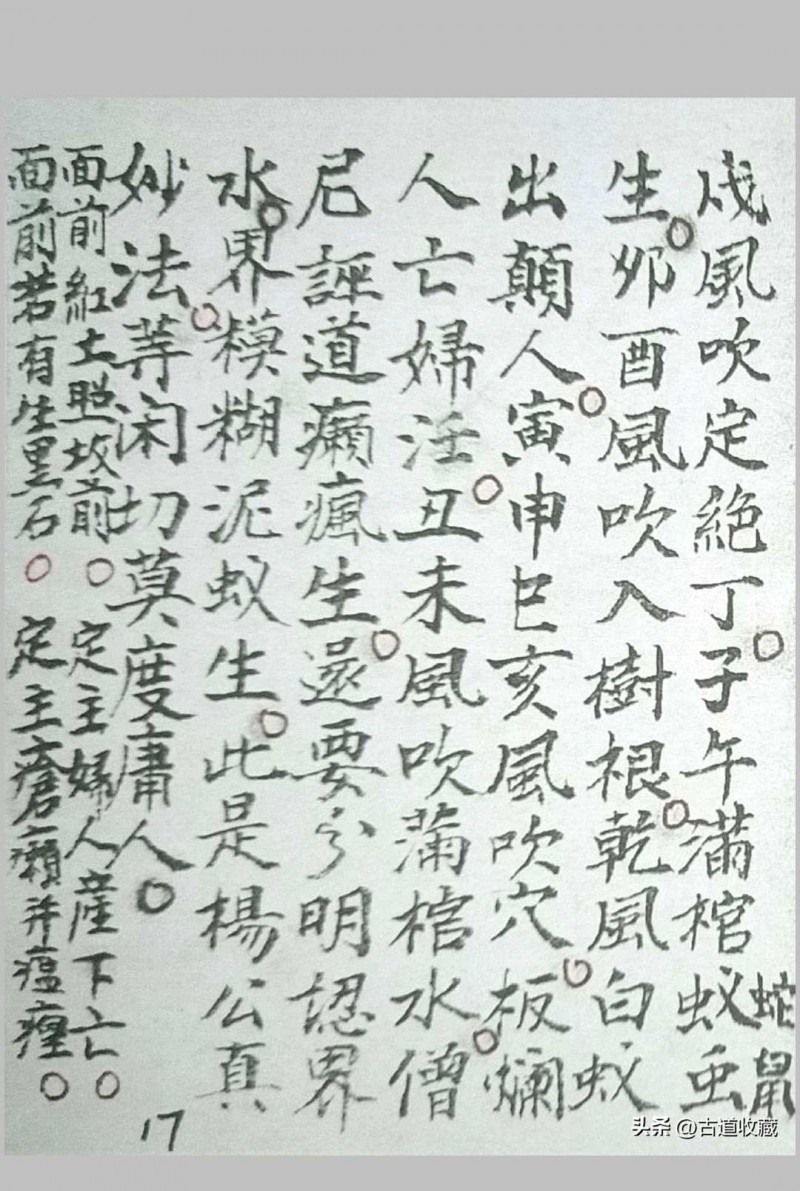 戌風吹定絕丁○子午滿棺蚁虫
蛇鼠
生○夘酉風吹入樹根○乾風白蚁
出顛人○寅申巳亥風吹穴○板爛
人亡婦○丑未風吹滿棺水○僧
尼誣道癩瘋生○還要分明認界
水○界糢糊泥蚁生○此是楊公真
妙法○等闲切莫度庸人○
面前紅土照坟前○定主婦人產下亡○
面前若有生黑石○定主瘡癩并瘟○
17
头条 @古道收藏